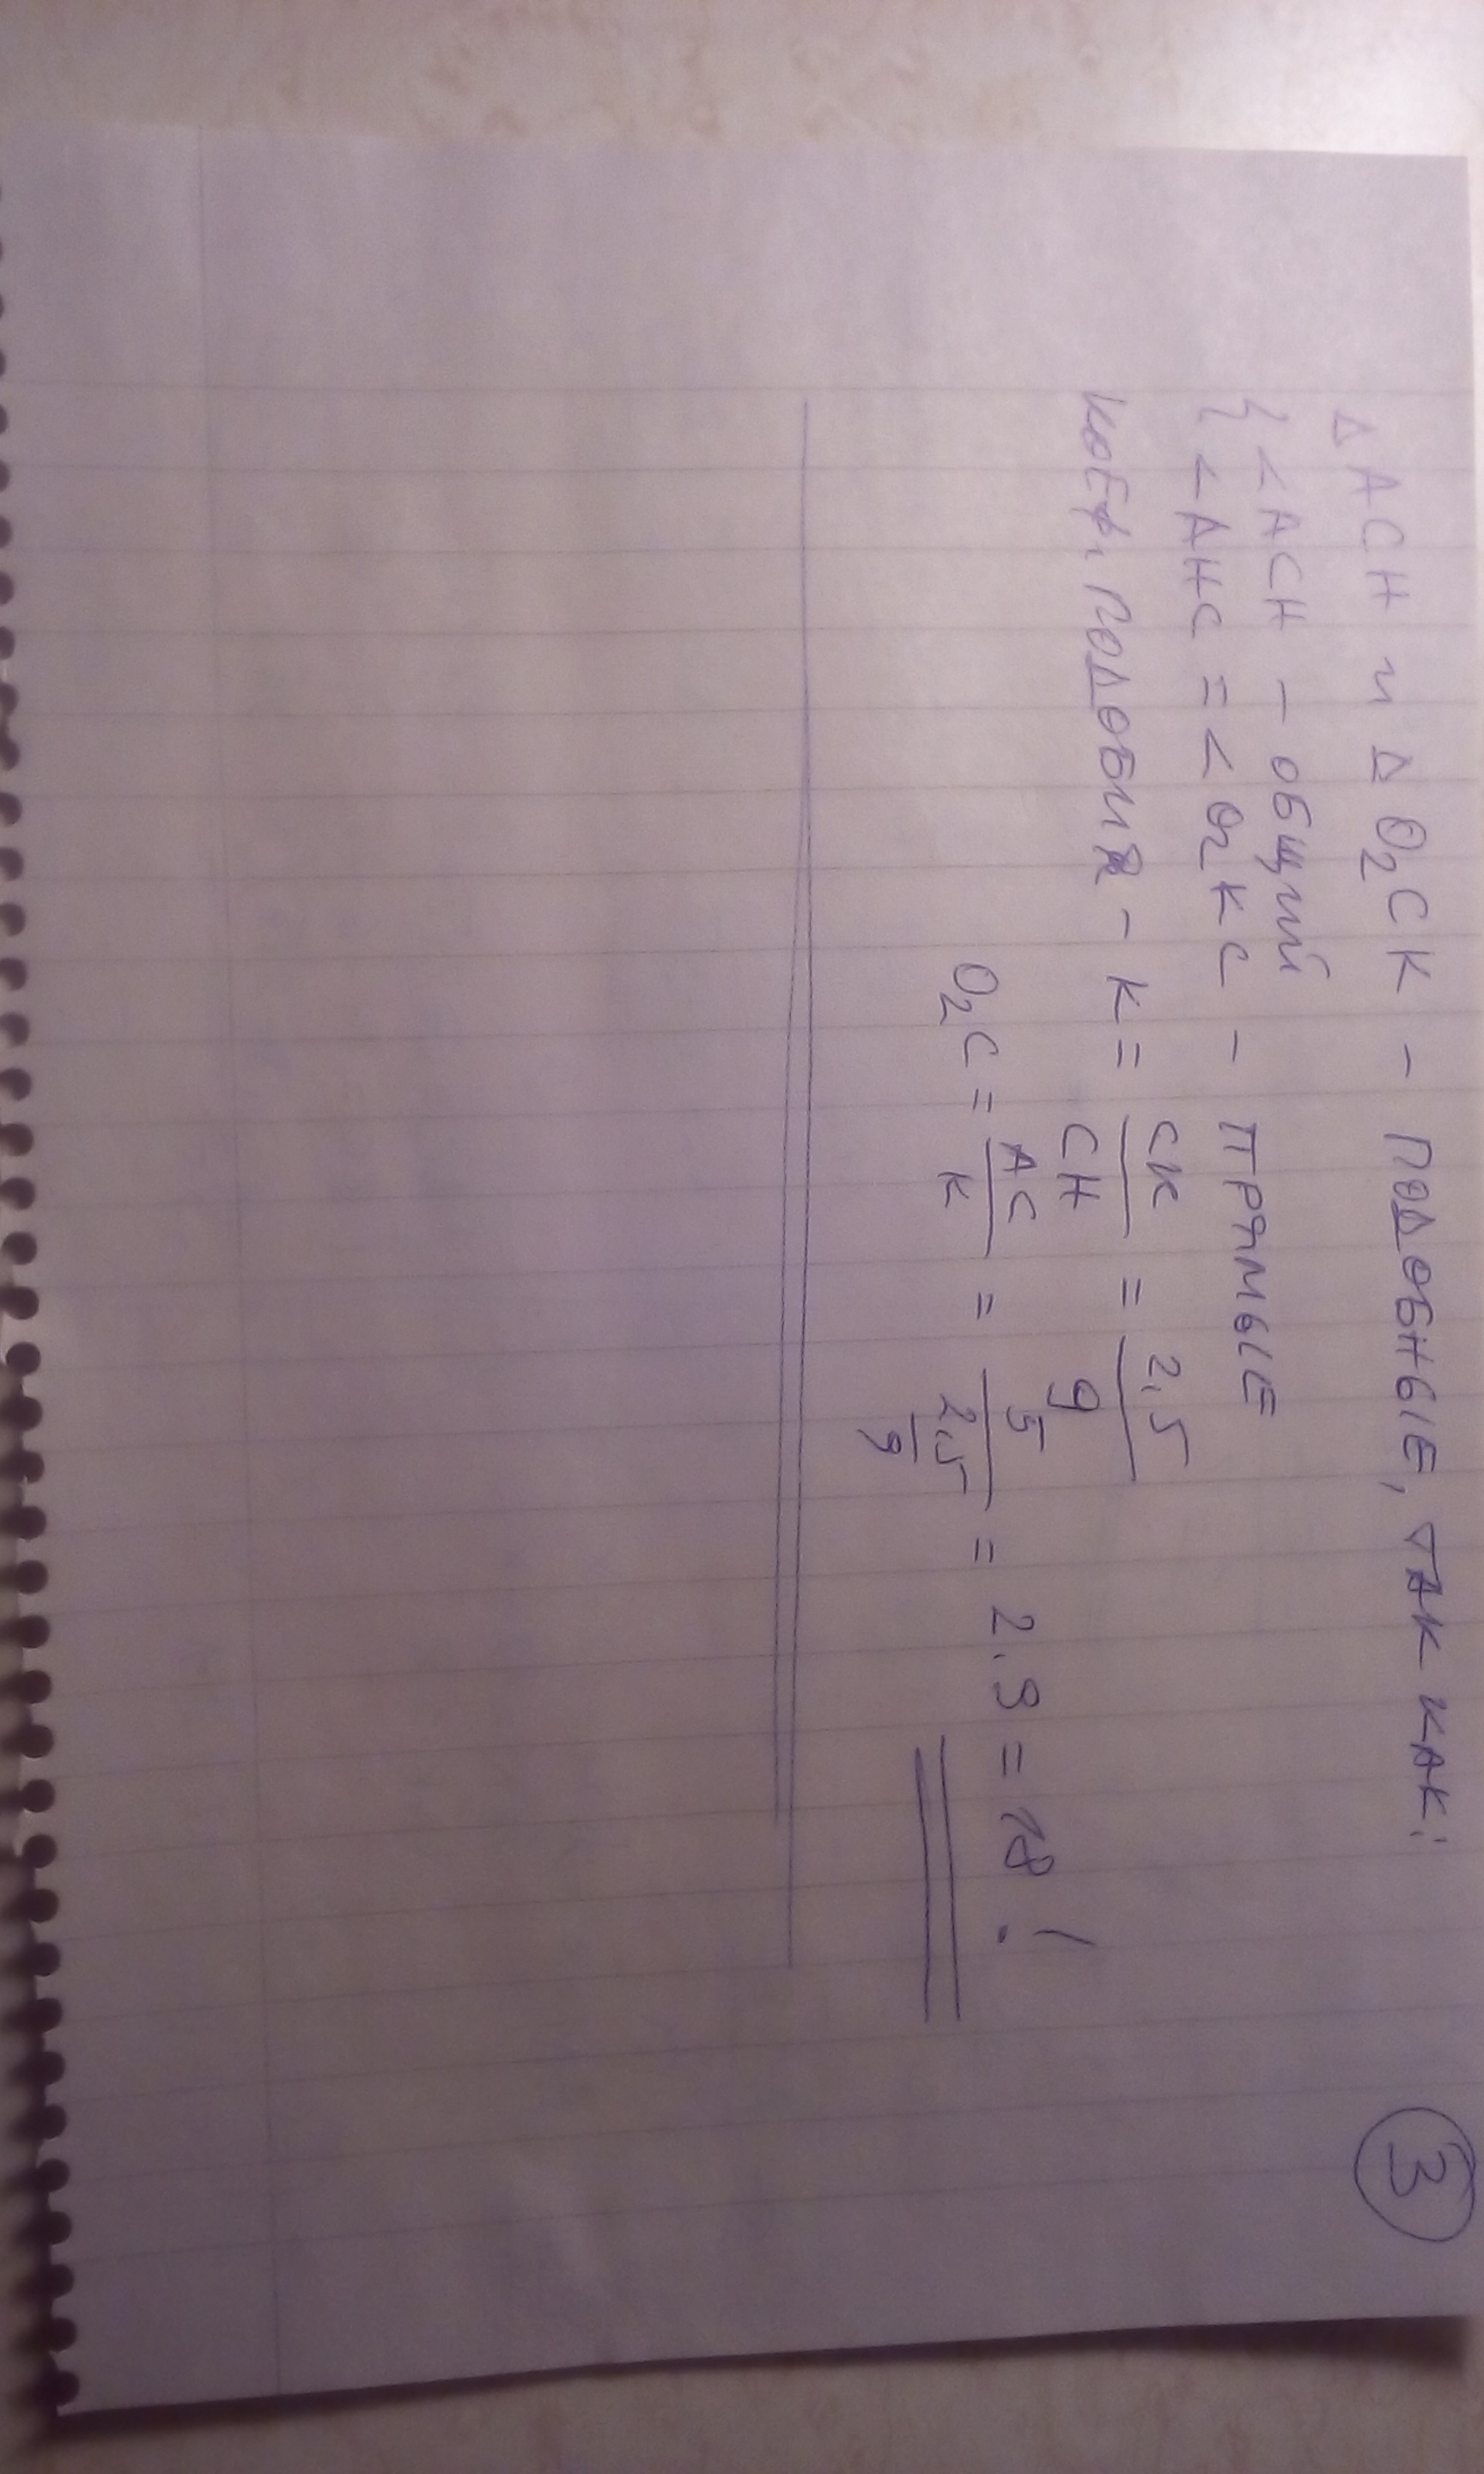 ③
Δ ACH и Δ O₂CK – ПОДОБНЫЕ, ТАК КАК:
{ <ACH – ОБЩИЙ
{ <AHC = <O₂KC – ПРЯМЫЕ
КОЕФ, ПОДОБИЯ – K = CK/CH = 2,5/9
O₂C = AC/K = 5/(2,5/9) = 2.9 = 18!